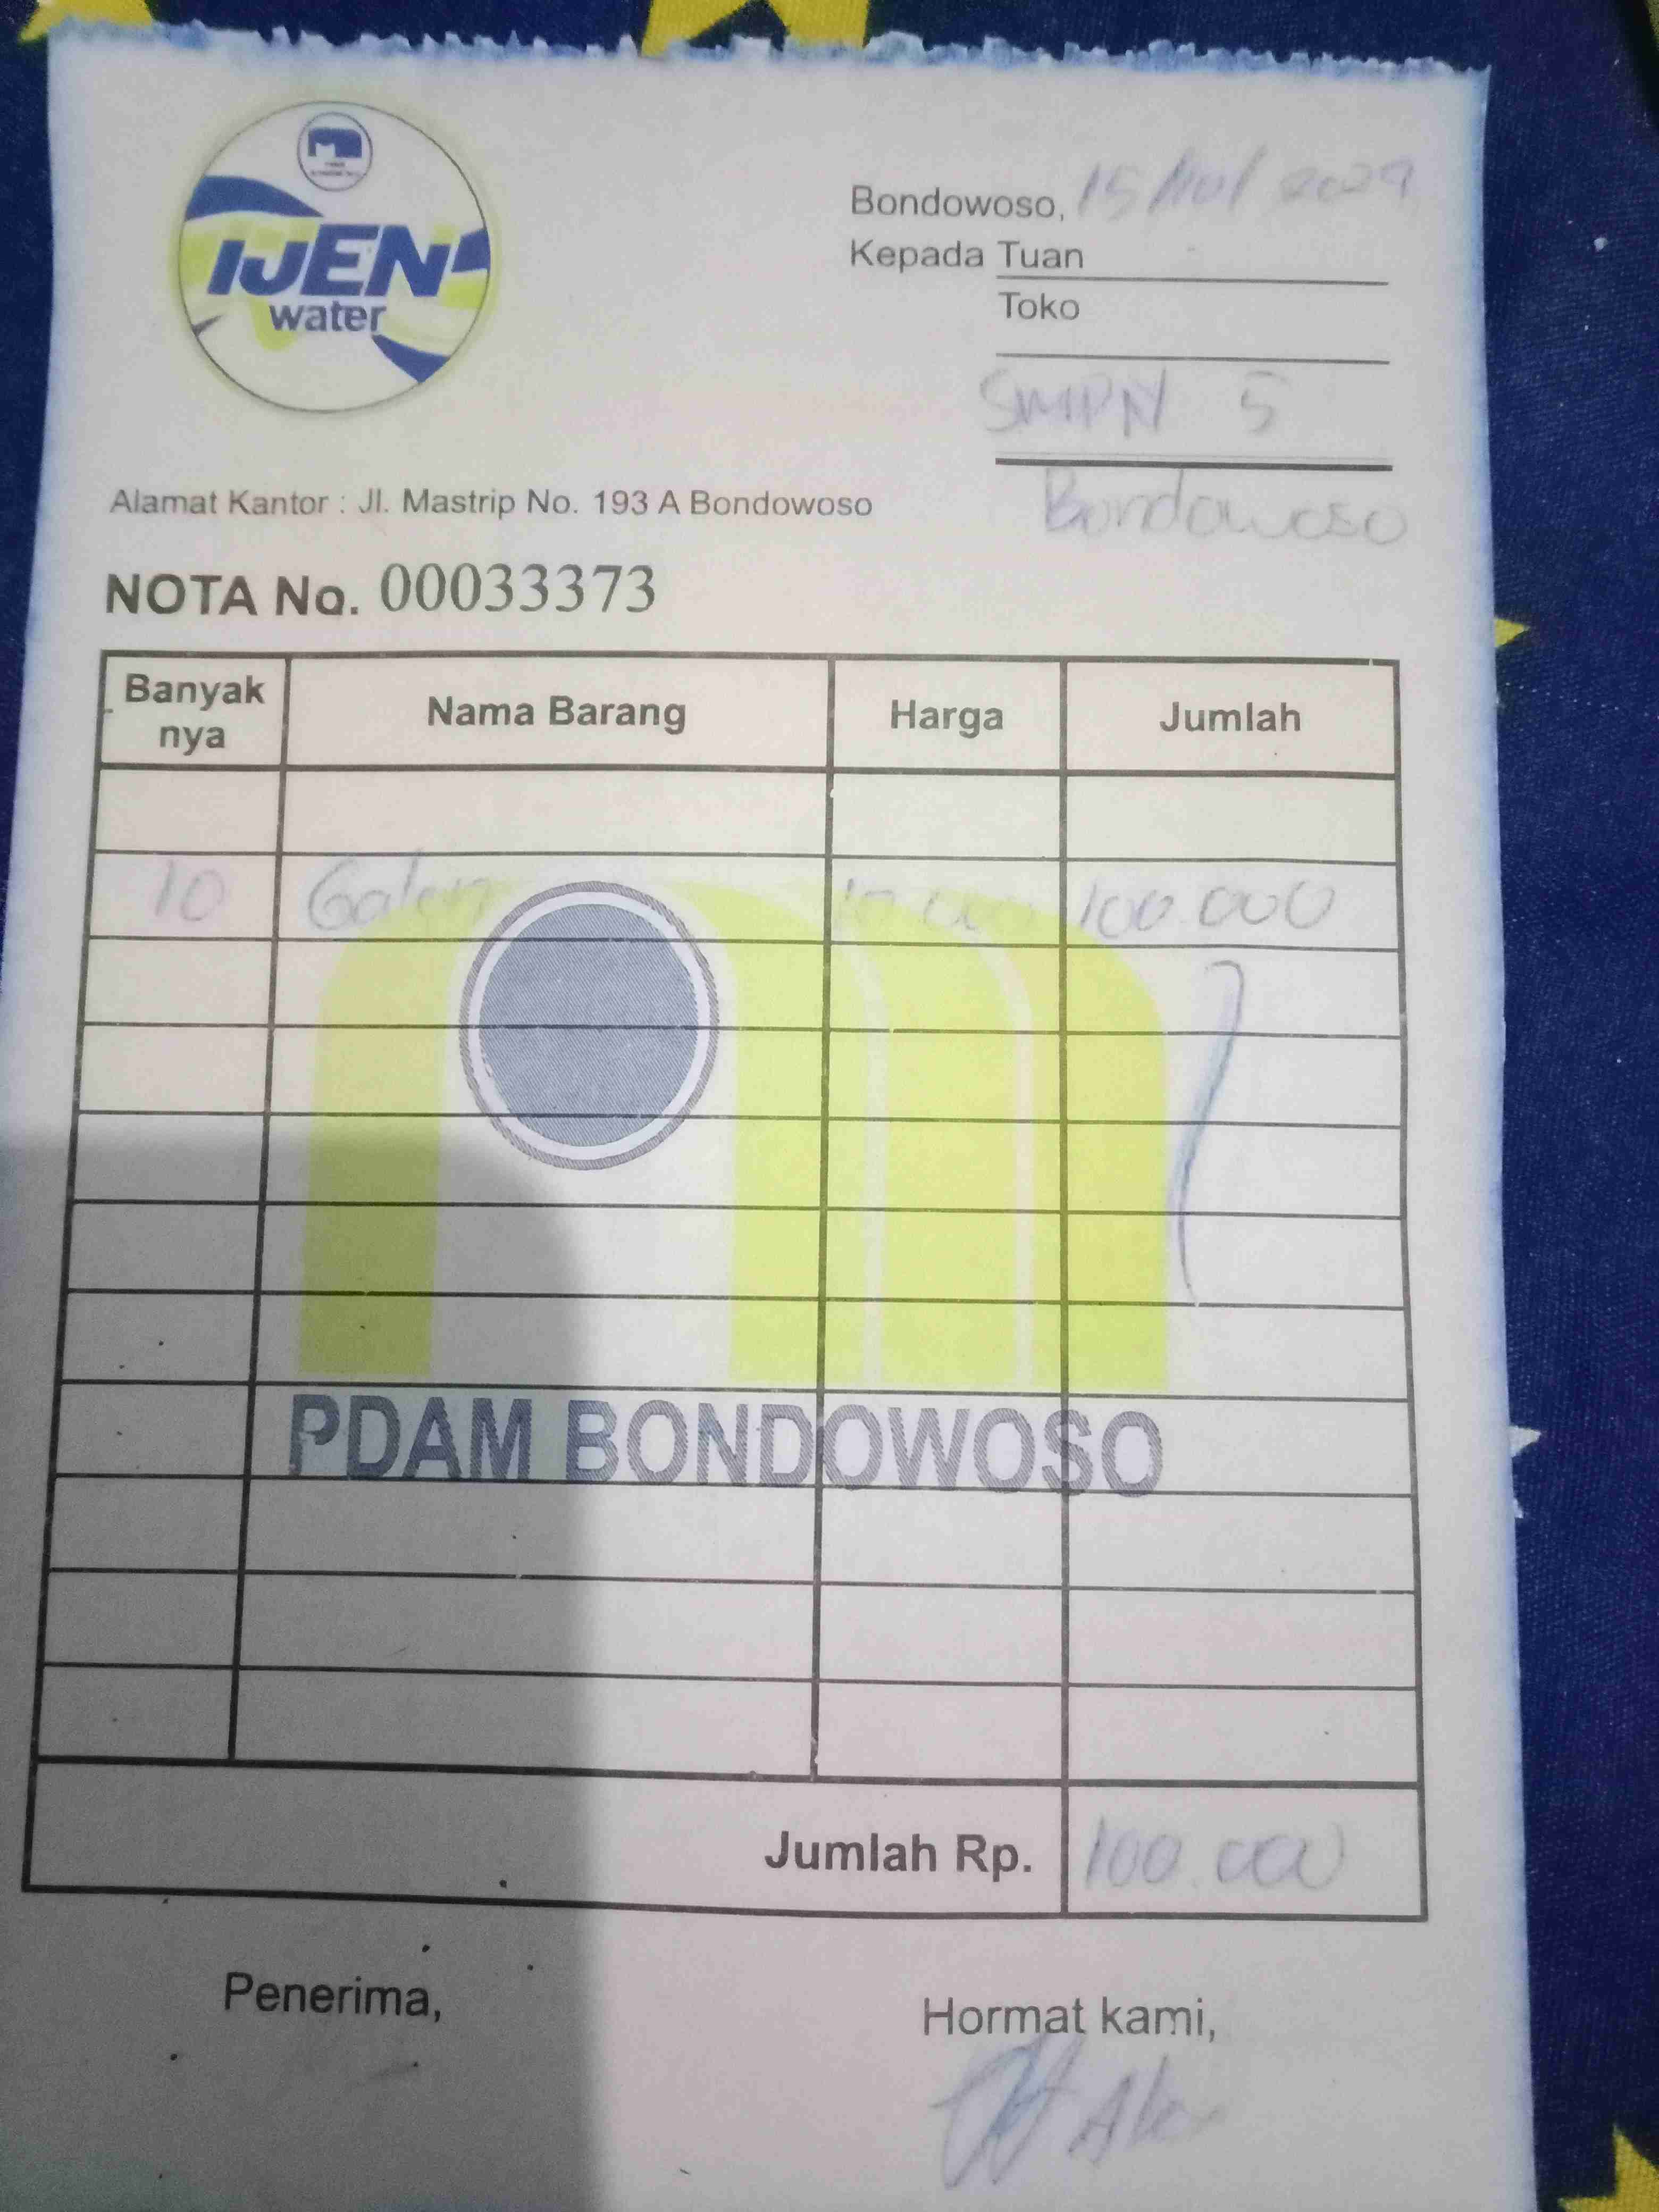 IJEN
water
Bondowoso, 15
Kepada Tuan
Toko
SMPN 5
Bondowoso
Alamat Kantor : Jl. Mastrip No. 193 A Bondowoso
NOTA No. 00033373
Banyak nya Nama Barang Harga Jumlah
10 Galon 10.000 100.000
PDAM BONDOWOSO
Jumlah Rp. 100.000
Penerima,
Hormat kami,